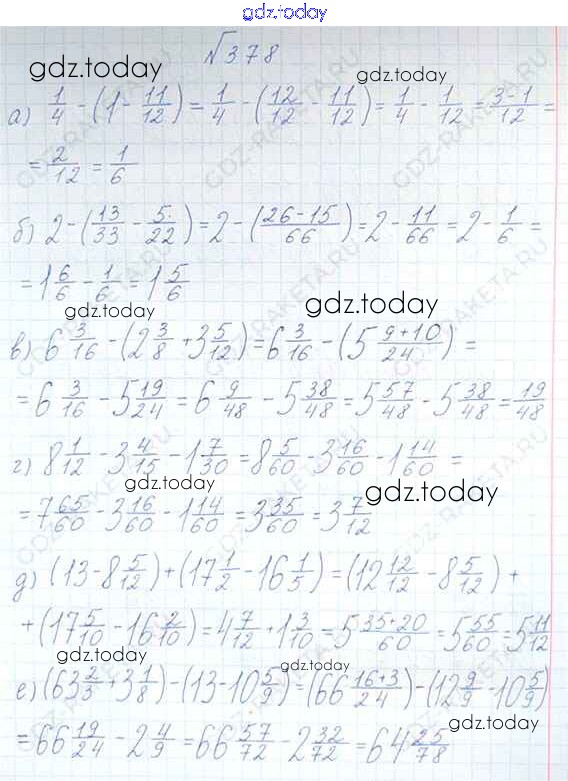 gdz.today
№378
gdz.today gdz.today
а) 1/4 - (1 - 11/12) = 1/4 - (12/12 - 11/12) = 1/4 - 1/12 = (3-1)/12 =
= 2/12 = 1/6
б) 2 - (13/33 - 5/22) = 2 - ((26-15)/66) = 2 - 11/66 = 2 - 1/6 =
= 1 6/6 - 1/6 = 1 5/6
gdz.today gdz.today
в) 6 3/16 - (2 3/8 + 3 5/12) = 6 3/16 - (5 (9+10)/24) =
= 6 3/16 - 5 19/24 = 6 9/48 - 5 38/48 = 5 57/48 - 5 38/48 = 19/48
г) 8 1/12 - 3 4/15 - 1 7/30 = 8 5/60 - 3 16/60 - 1 14/60 =
gdz.today gdz.today
= 7 65/60 - 3 16/60 - 1 14/60 = 3 35/60 = 3 7/12
д) (13 - 8 5/12) + (17 1/2 - 16 1/5) = (12 12/12 - 8 5/12) +
+ (17 5/10 - 16 2/10) = 4 7/12 + 1 3/10 = 5 (35+20)/60 = 5 55/60 = 5 11/12
gdz.today gdz.today
е) (63 2/3 + 3 1/8) - (13 - 10 5/9) = (66 (16+3)/24) - (12 9/9 - 10 5/9)
gdz.today
= 66 19/24 - 2 4/9 = 66 57/72 - 2 32/72 = 64 25/78
GDZ-RAKETA.RU